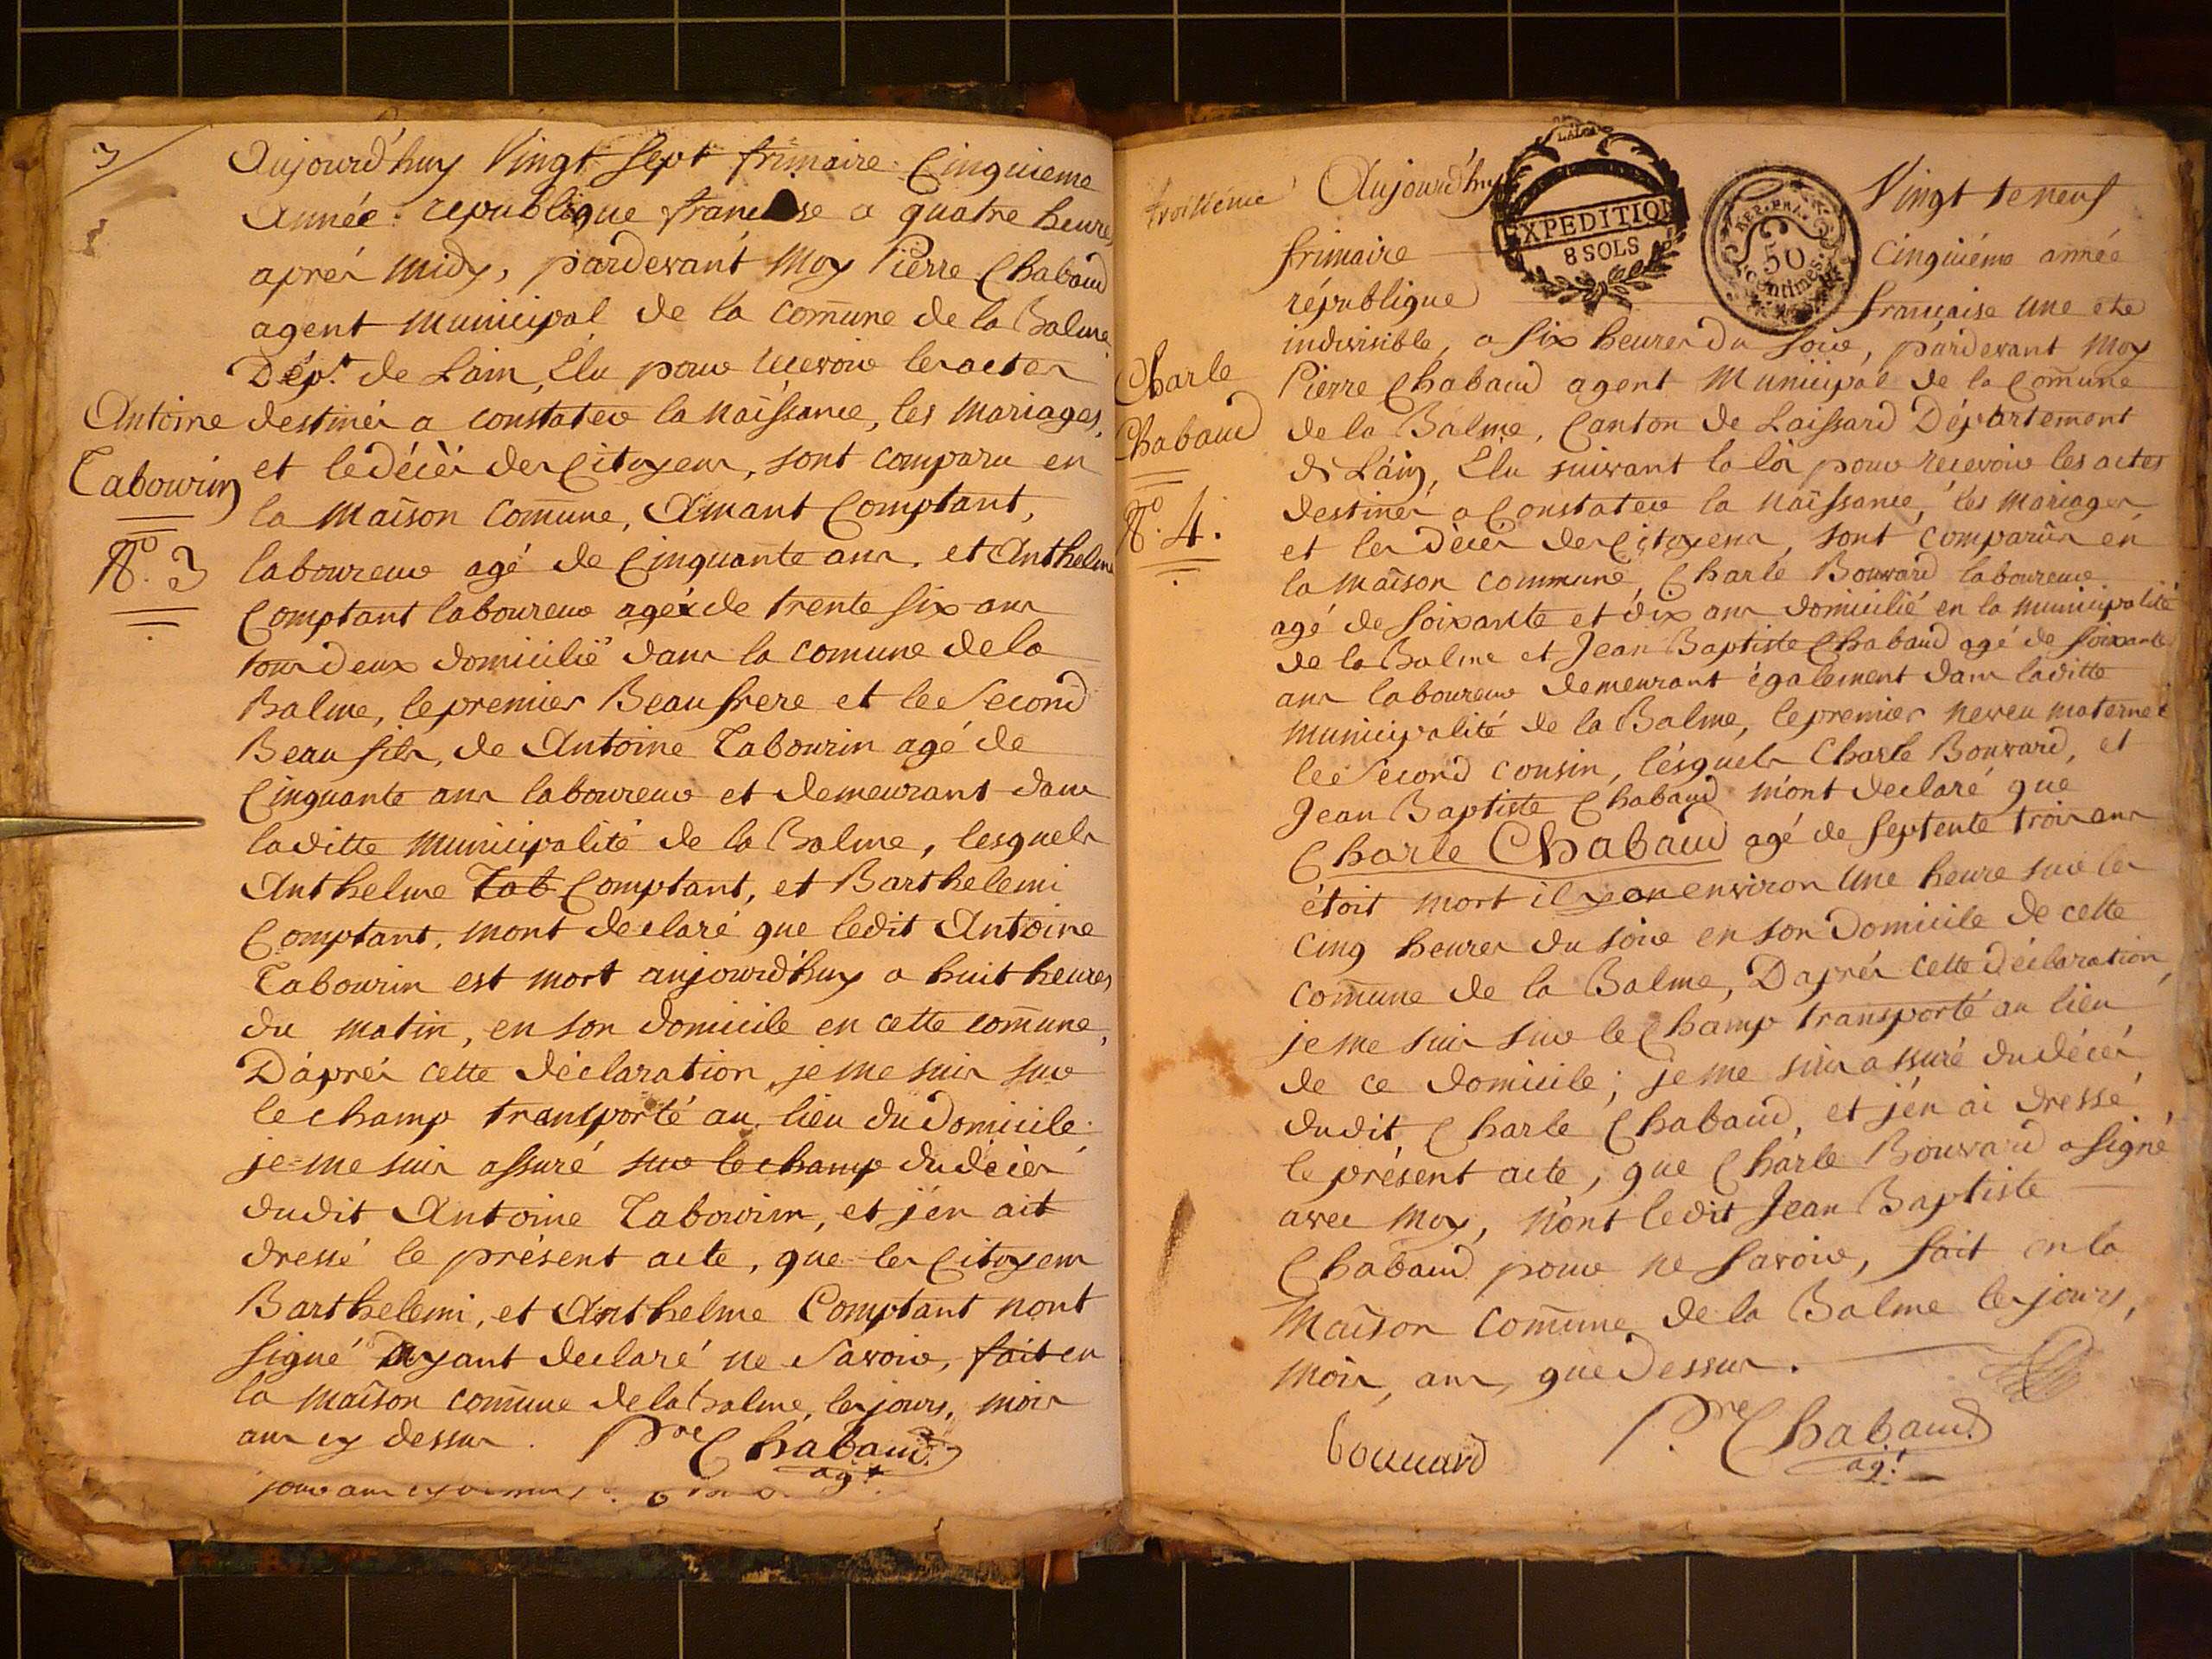 3/
Aujourd'huy Vingt sept frimaire Cinquieme
Année republique francaise a quatre heures
aprés midy, pardevant moy Pierre Chabaud
agent municipal de la com̄une de la Balme
Dépt. de Lain, Élu pour recevoir les actes
Antoine
Tabourin
N.o 3
destinés a constater la naîssance, les mariages,
et le décès des Citoyens, sont comparu en
la maîson com̄une, Amant Comptant,
laboureur agé de Cinquante ans, et Anthelme
Comptant laboureur agé de trente six ans
tous deux domicilié dans la comune de la
Balme, le premier Beau frere et le Second
Beau fils, de Antoine Tabourin agé de
Cinquante ans laboureur et demeurant dans
laditte municipalité de la Balme, lesquels
Anthelme Tab Comptant, et Barthelemi
Comptant, mont declaré que ledit Antoine
Tabourin est mort aujourd'huy a huit heures
du matin, en son domicile en cette com̄une,
D'áprés cette déclaration, je me suis sur
le champ transporté au lieu du domicile
je me suis assuré sur le champ du décès
dudit Antoine Tabourin, et j'én ait
dressé le présent acte, que les Citoyens
Barthelemi, et Anthelme Comptant nont
signé Ayant declaré ne Savoir, fait en
la maîson com̄une de la Balme, les jours, mois
ans cy dessus. Pre Chabaud
agt.
troisiéme
Aujourd'huy Vingt te neuf
LALOI
EXPEDITION
8 SOLS
REP. FRA.
50
Centimes
frimaire Cinquiéme année
république française une et
indivisible, a six heures du soir, pardevant moy
Charle
Chabaud
N.o 4.
Pierre Chabaud agent Municipal de la Com̄une
de la Balme, Canton de Laissard Département
de Láin, Élu suivant la loi pour recevoir les actes
destinés a Constater la naîssance, les mariages
et les décès des Citoyens, sont comparûs en
la maîson commune, Charle Bouvard laboureur
agé de soixante et dix ans domicilié en la municipalité
de la Balme et Jean Baptiste Chabaud agé de soixante
ans laboureur demeurant également dans laditte
municipalité de la Balme, le premier neveu maternel
le Second cousin, lésquels Charle Bouvard, et
Jean Baptiste Chabaud m'ont declaré que
Charle Chabaud agé de septente trois ans
étoit mort il y a environ une heure sur les
cinq heures du soir en son domicile de cette
com̄une de la Balme, D'aprés cette déclaration
je me suis sur le Champ transporté au lieu
de ce domicile; je me suis assuré du décès
dudit Charle Chabaud, et j'én ai dressé
le présent acte, que Charle Bouvard a signé
avec moy, n'ont ledit Jean Baptiste
Chabaud pour ne savoir, fait en la
maîson com̄une de la Balme les jours,
mois, ans, que dessus.
bouuard
Pre Chabaud
agt.